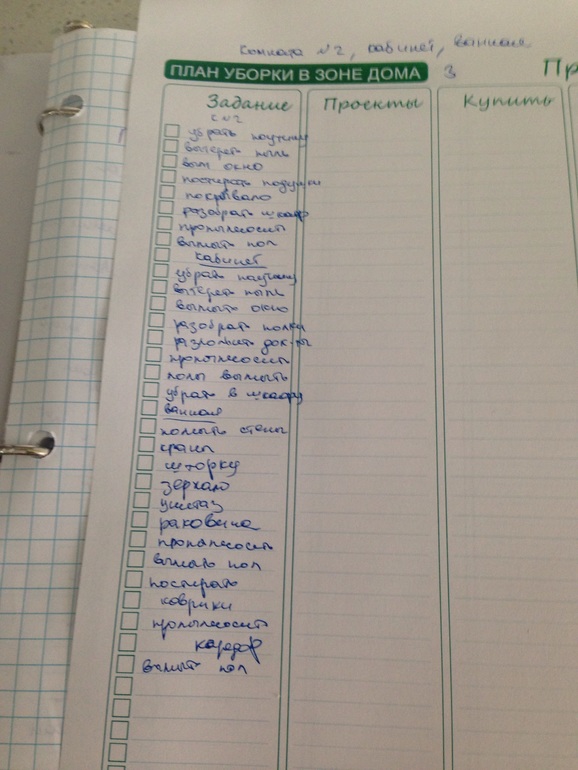 Комната №2, кабинет, ванная
ПЛАН УБОРКИ В ЗОНЕ ДОМА 3
Пр
Задание Проекты Купить
с №2
убрать паутину
вытереть пыль
вым окно
постирать подушки
покрывало
разобрать шкаф
пропылесосить
вымыть пол
кабинет
убрать паутину
вытереть пыль
вымыть окно
разобрать полки
разложить док-ты
пропылесосить
полы вымыть
убрать в шкафу
ванная
помыть стены
краны
шторку
зеркало
унитаз
раковина
пропылесосить
вымыть пол
постирать
коврики
пропылесосить
коридор
вымыть пол